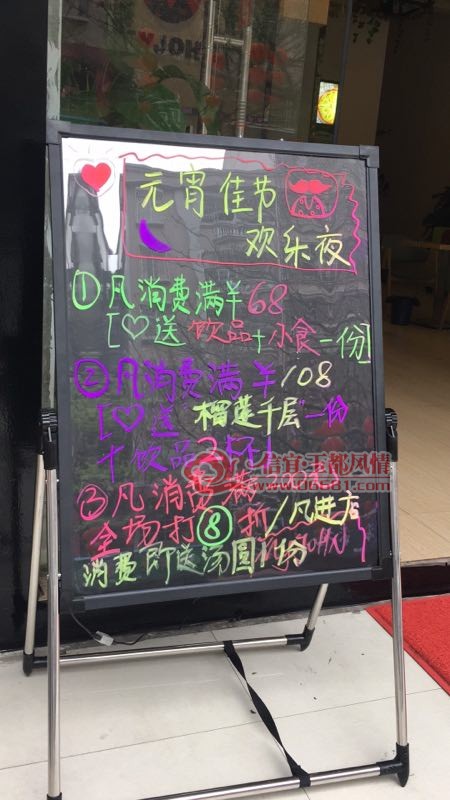 元宵佳节
欢乐夜
①凡消费满¥68
[♡送饮品+小食一份]
②凡消费满¥108
[♡送榴莲千层一份
+饮品2杯]
③凡消费满
全场打⑧折/凡进店
消费即送汤圆1份
信宜玉都风情